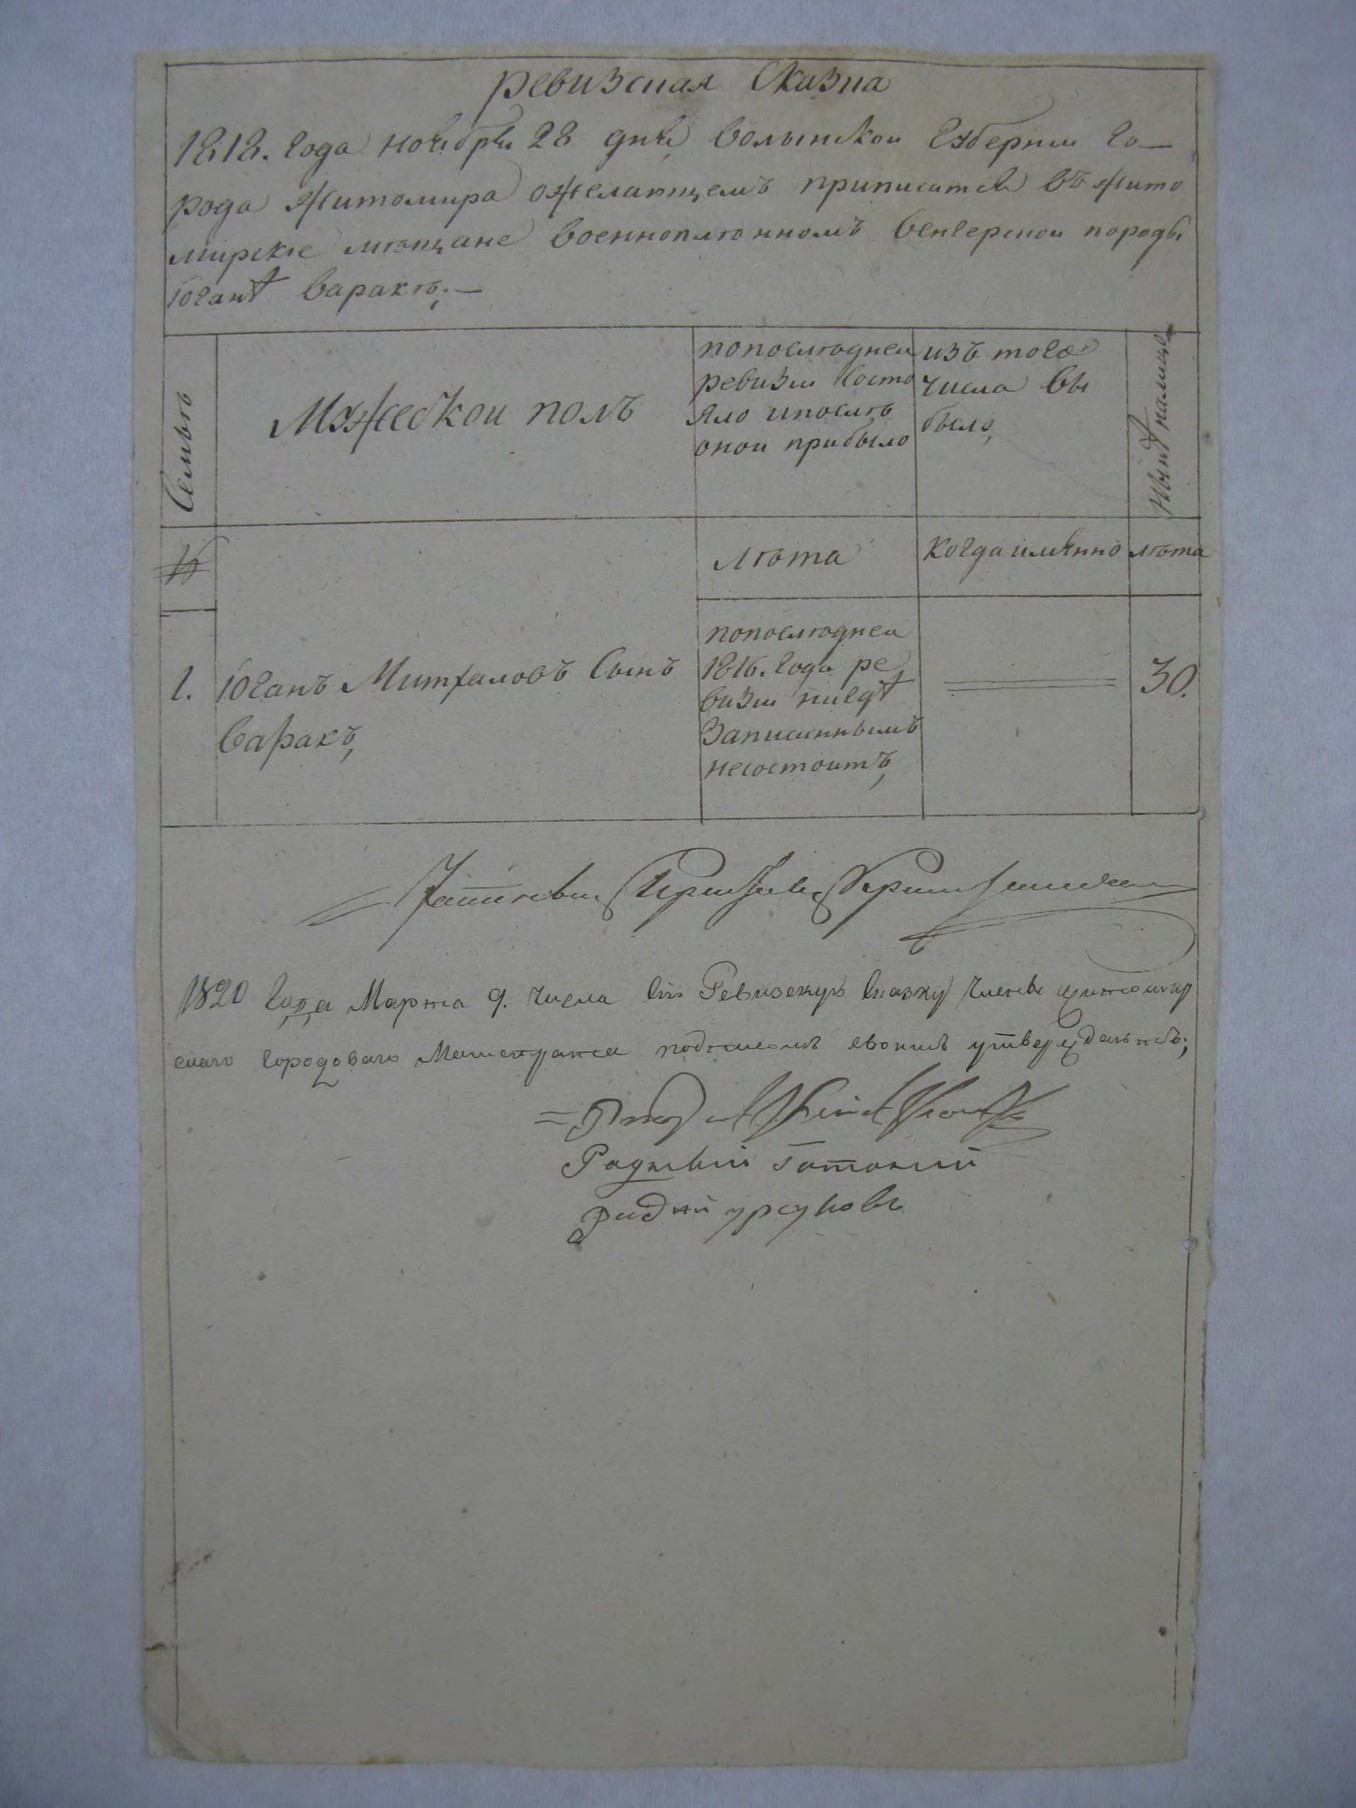 Ревизская Сказка
1818. года ноября 28 дня волынской Губернии го–
рода Житомира ожелающемъ приписатся въ жито
мирские мѣщане военноплѣнномъ венгерской породы
Юганѣ Варакѣ,–
Семьѣ
Мужескои полъ
попослѣднеи
ревизии Состо
яло ипослѣ
онои прибыло
изъ того
числа вы
было,
Нынѣ налицо
№
лѣта
когда имянно
лѣта
1.
Юганъ Михаловъ Сынъ
Варакъ,
попослѣднеи
1816. года ре
визии нигдѣ
Записаннымъ
несостоитъ,
30.
1820 года Марта 9. числа сию Ревизскую сказку Члены житомир
скаго городоваго Магистрата подписомъ своимъ утверждаютъ;
Ратманъ
урсуловъ